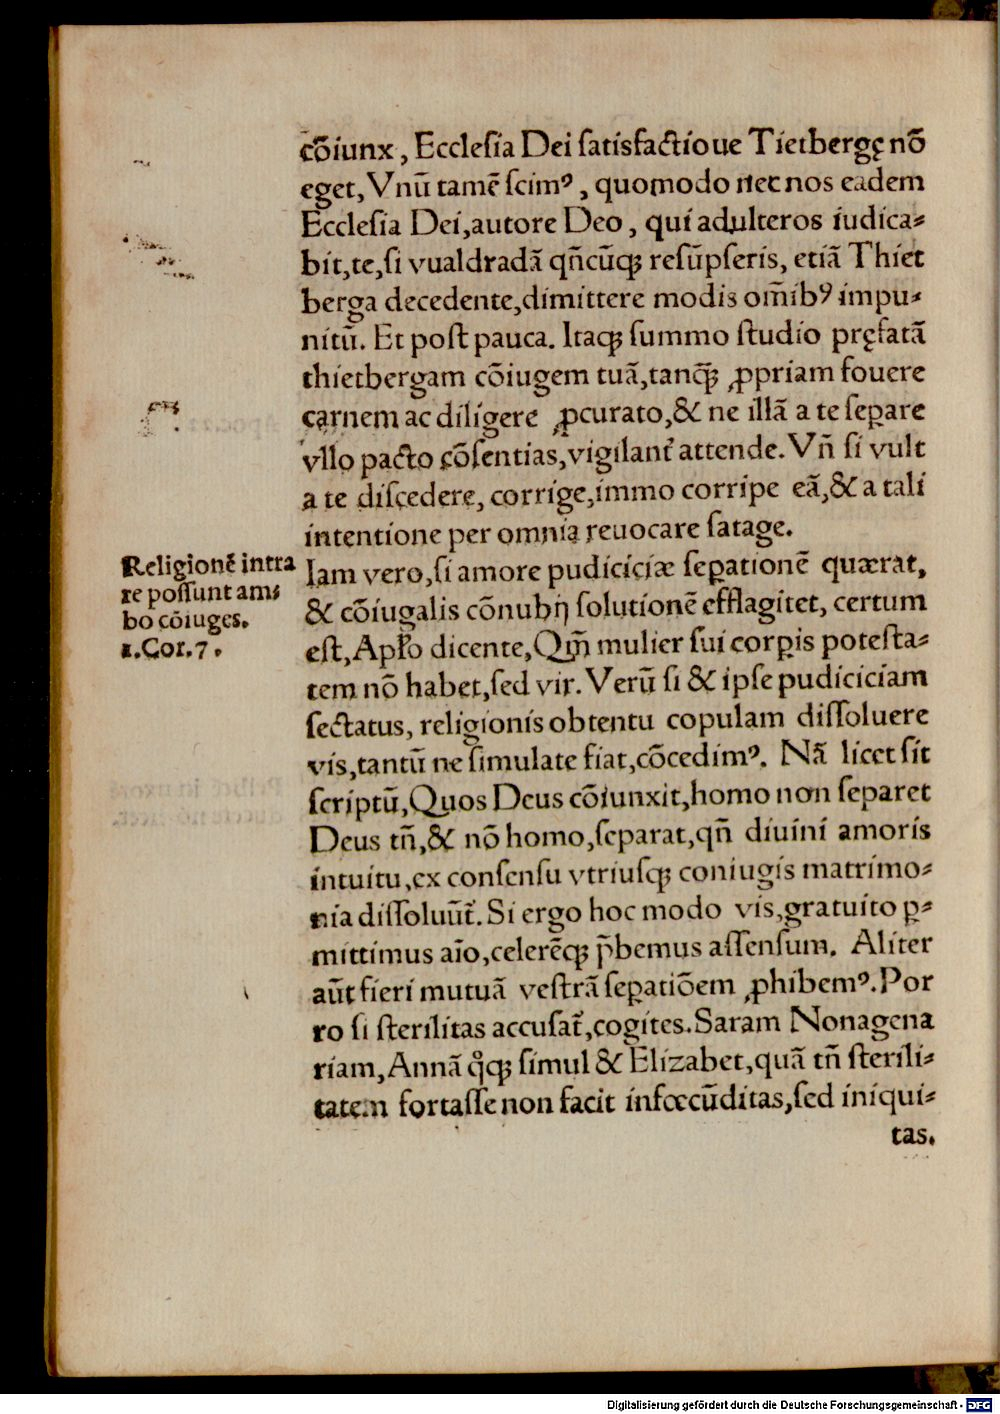 cōiunx, Eccleſia Dei ſatisfactiōue Tietbergę nō
eget, Vnū tamē ſcimꝰ, quomodo nec nos eadem
Eccleſia Dei, autore Deo, qui adulteros iudica⸗
bit, te, ſi vualdradā qñcūqꝫ reſūpſeris, etiā Thiet
berga decedente, dimittere modis om̄ibꝰ impu⸗
nitū. Et poſt pauca. Itaqꝫ ſummo ſtudio pręfatā
thietbergam cōiugem tuā, tanqꝫ̄ ꝓpriam fouere
carnem ac diligere ꝓcurato, & ne illā a te ſepare
vllo pacto cōſentias, vigilant᷑ attende. Vñ ſi vult
a te diſcedere, corrige, immo corripe eā, & a tali
intentione per omnia reuocare ſatage.
Iam vero, ſi amore pudiciciæ ſeꝑationē quærat,
& cōiugalis cōnubij ſolutionē efflagitet, certum
eſt, Apl̄o dicente, Qm̄ mulier ſui corꝑis poteſta⸗
tem nō habet, ſed vir. Verū ſi & ipſe pudiciciam
ſectatus, religionis obtentu copulam diſſoluere
vis, tantū ne ſimulate fiat, cōcedimꝰ. Nā licet ſit
ſcriptū, Quos Deus cōiunxit, homo non ſeparet
Deus tñ, & nō homo, ſeparat, qñ diuini amoris
intuitu, ex conſenſu vtriuſqꝫ coniugis matrimo⸗
nia diſſoluūt᷑. Si ergo hoc modo vis, gratuito ꝑ⸗
mittimus aīo, celerēqꝫ p̄bemus aſſenſum. Aliter
aūt fieri mutuā veſtrā ſeꝑatiōem ꝓhibemꝰ. Por
ro ſi ſterilitas accuſat᷑, cogites. Saram Nonagena
riam, Annā qͦqꝫ ſimul & Elizabet, quā tñ ſterili⸗
tatem fortaſſe non facit infœcūditas, ſed iniqui⸗
tas.
Religionē intra
re poſſunt am⸗
bo cōiuges.
1.Cor.7.
Digitalisierung gefördert durch die Deutsche Forschungsgemeinschaft - DFG